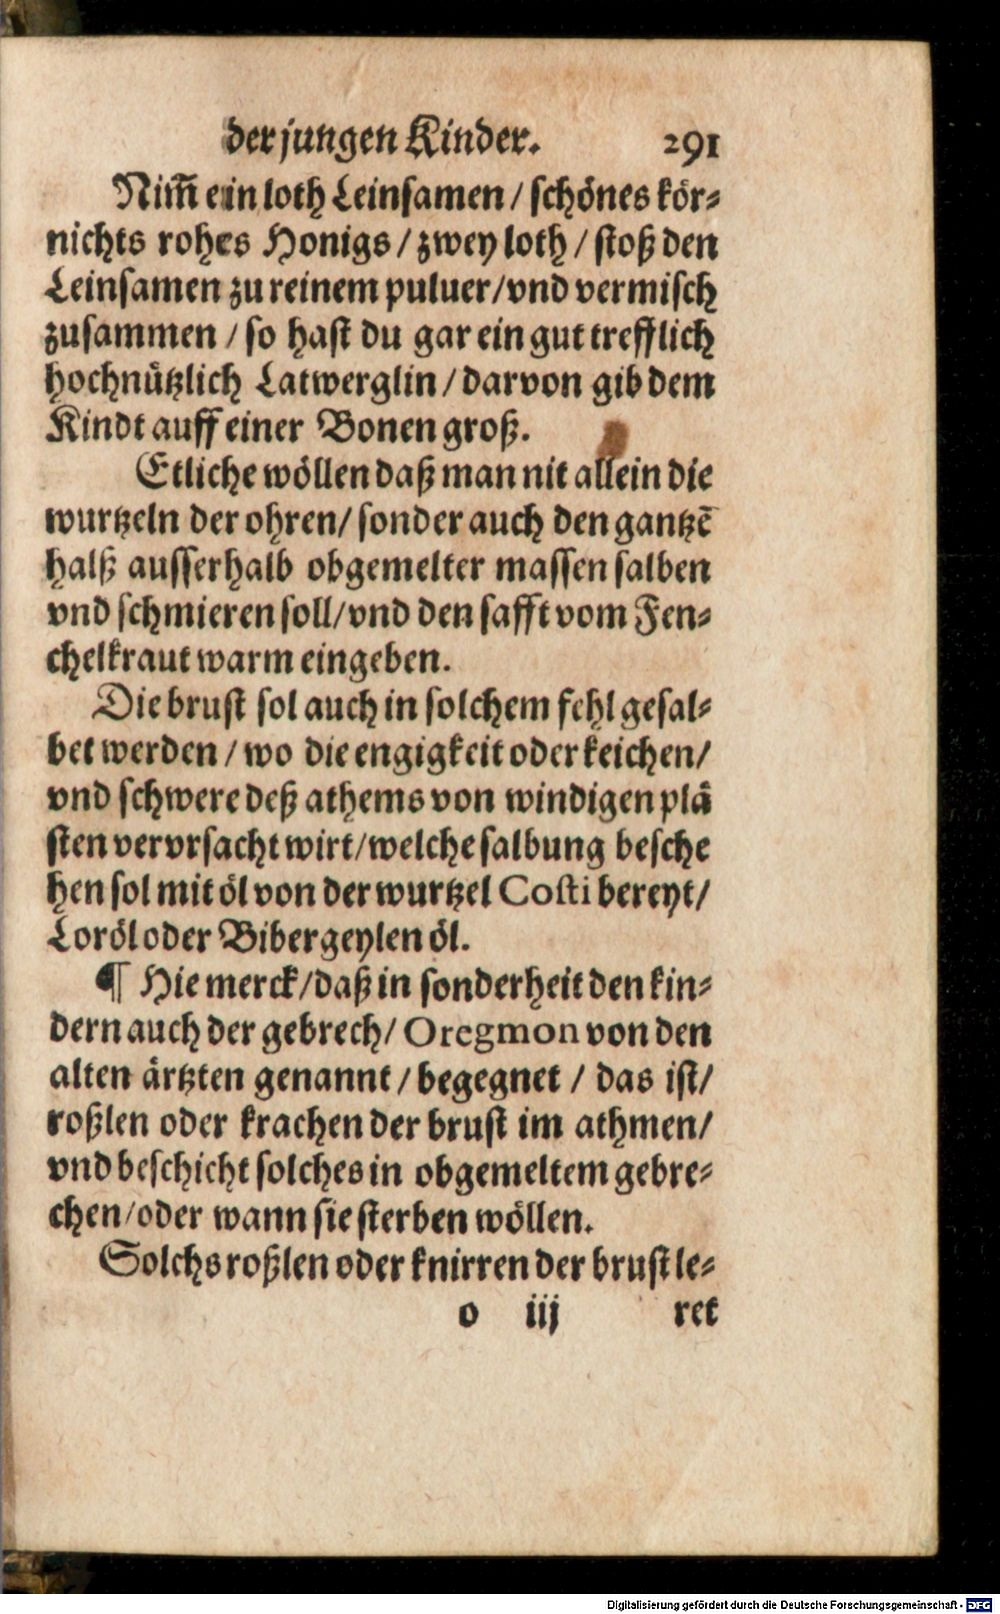 der jungen Kinder. 291
Nim̃ ein loth Leinsamen / schönes kör-
nichts rohes Honigs / zwey loth / stoß den
Leinsamen zu reinem puluer / vnd vermisch
zusammen / so hast du gar ein gut trefflich
hochnützlich Latwerglin / darvon gib dem
Kindt auff einer Bonen groß.
Etliche wöllen daß man nit allein die
wurtzeln der ohren / sonder auch den gantzē
halß ausserhalb obgemelter massen salben
vnd schmieren soll / vnd den safft vom Fen-
chelkraut warm eingeben.
Die brust sol auch in solchem fehl gesal-
bet werden / wo die engigkeit oder keichen /
vnd schwere deß athems von windigen plä
sten vervrsacht wirt / welche salbung besche
hen sol mit öl von der wurtzel Costi bereyt /
Loröl oder Bibergeylen öl.
¶ Hie merck / daß in sonderheit den kin-
dern auch der gebrech / Oregmon von den
alten ärtzten genannt / begegnet / das ist /
roßlen oder krachen der brust im athmen /
vnd beschicht solches in obgemeltem gebre-
chen / oder wann sie sterben wöllen.
Solchs roßlen oder knirren der brust le-
o iij ret
Digitalisierung gefördert durch die Deutsche Forschungsgemeinschaft - DFG